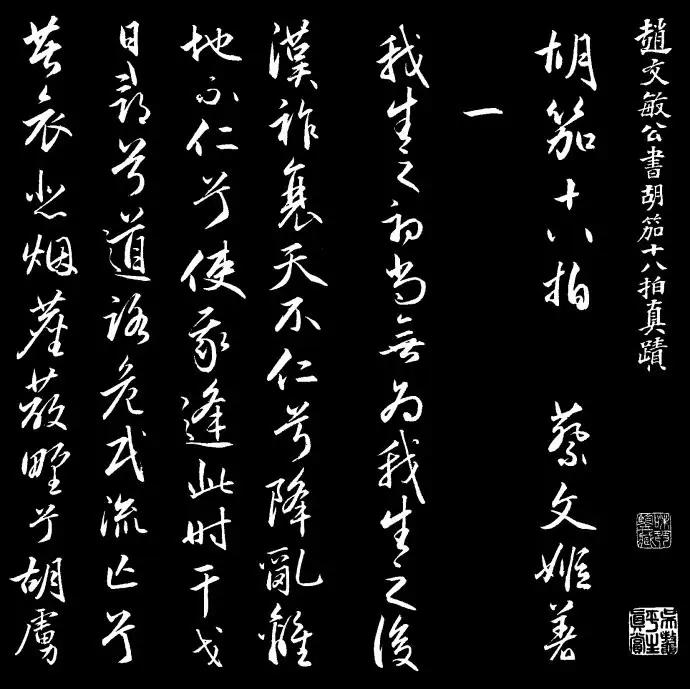 趙文敏公書胡笳十八拍真蹟
胡笳十八拍 蔡文姬著
一
我生之初尚無為我生之後
漢祚衰天不仁兮降亂離
地不仁兮使我逢此时干戈
日尋兮道路危民流亡兮
共哀悲烟塵蔽野兮胡虜